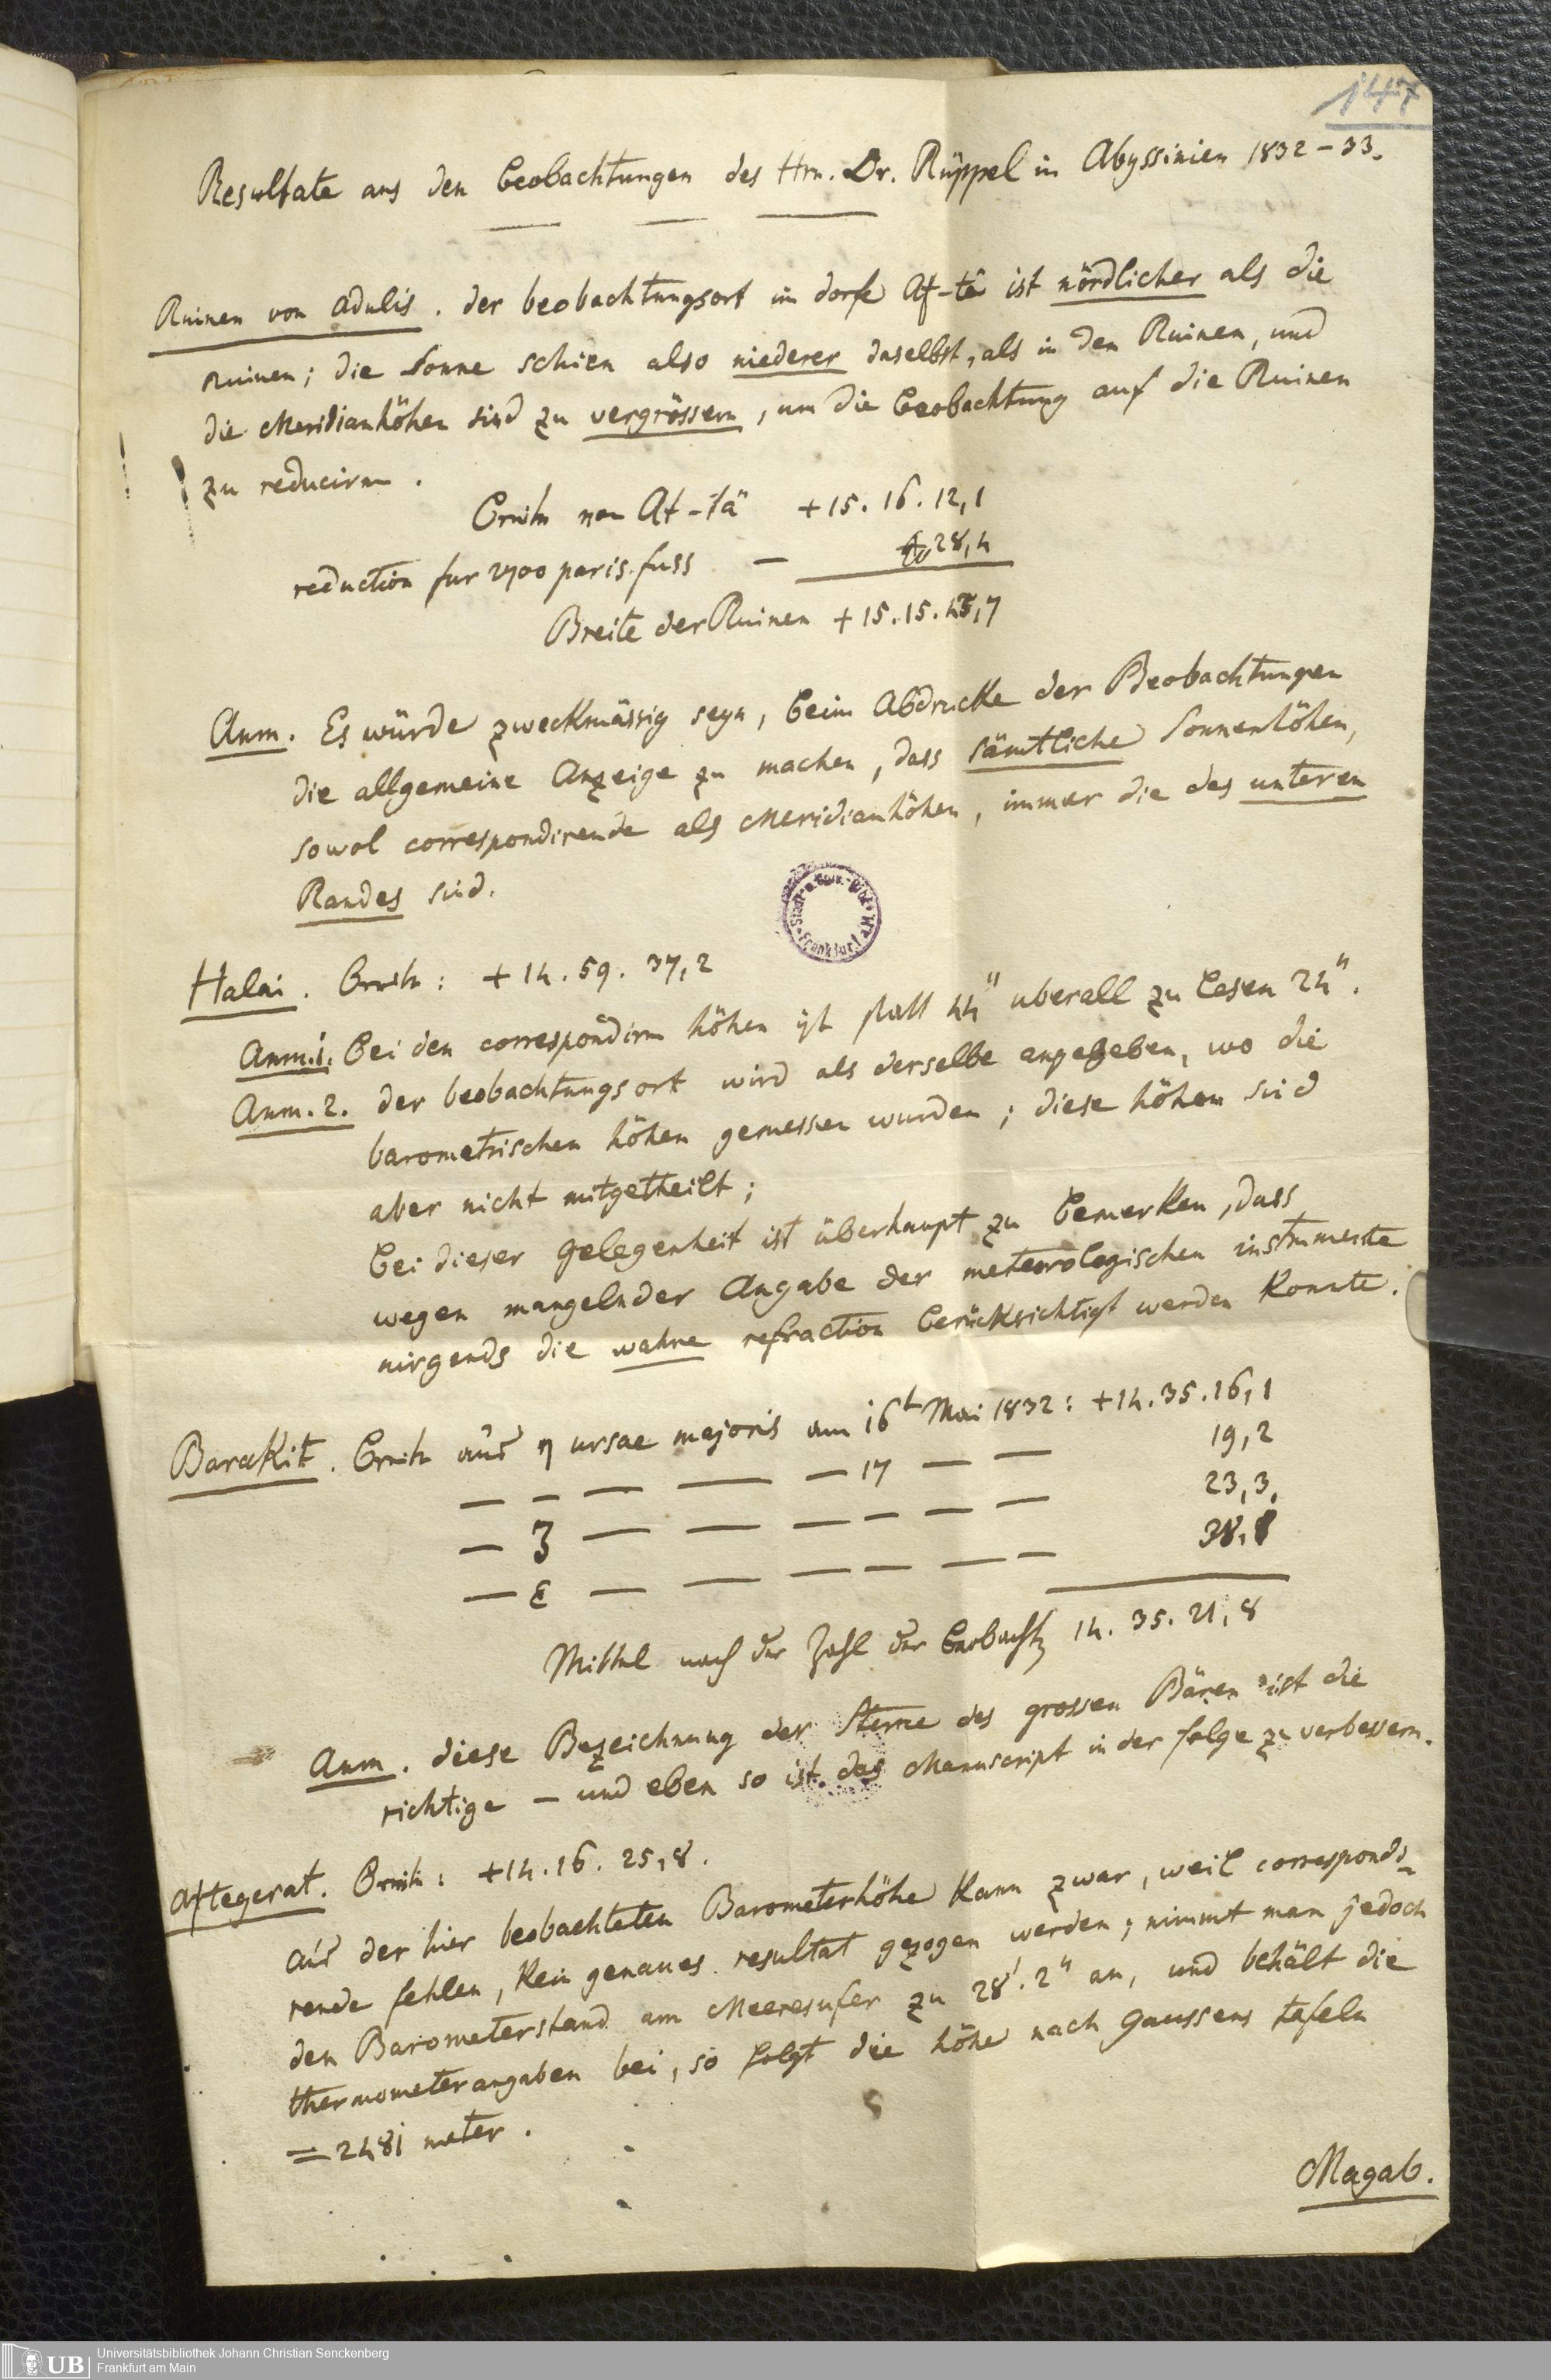 147
Resultate aus den Beobachtungen des Hrn. Dr. Rüppel in Abyssinien 1832–33.
Ruinen von Adulis. der beobachtungsort im dorfe Af-tê ist nördlicher als die
Ruinen; die Sonne schien also niederer daselbst, als in den Ruinen, und
die Meridianhöhen sind zu vergrössern, um die Beobachtung auf die Ruinen
zu reduciren.
Breite von Af-tä + 15. 16. 12,1
reduction fur 2700 paris. fuss — 28,4
Breite der Ruinen + 15. 15. 43,7
Anm. Es würde zweckmässig seyn, beim Abdrucke der Beobachtungen
die allgemeine Anzeige zu machen, dass sämtliche Sonnenhöhen,
sowol correspondirende als Meridianhöhen, immer die des unteren
Randes sind.
Halai. Breite: + 14. 59. 37,2
Anm. 1. Bei den correspondirn höhen ist statt 44" uberall zu lesen 24".
Anm. 2. der beobachtungsort wird als derselbe angegeben, wo die
barometrischen höhen gemessen wurden; diese höhen sind
aber nicht mitgetheilt;
bei dieser Gelegenheit ist überhaupt zu bemerken, dass
wegen mangelnder Angabe der meteorologischen instrumente
nirgends die wahre refraction berücksichtigt werden konnte.
Barakit. Breite aus η ursae majoris am 16t Mai 1832: + 14. 35. 16,1
— — — — — 17 — — 19,2
— ζ — — — — — — 23,3
— ε — — — — — — 38,8
Mittel nach der Zahl der Beobachtg 14. 35. 21,8
Anm. diese Bezeichnung der Sterne des grossen Bären ist die
richtige – und eben so ist das Manuscript in der folge zu verbessern.
Aftegerat. Breite: + 14. 16. 25,8.
aus der hier beobachteten Barometerhöhe kann zwar, weil correspondi-
rende fehlen, kein genaues resultat gezogen werden; nimmt man jedoch
den Barometerstand am Meeresufer zu 28'. 2" an, und behält die
thermometerangaben bei, so folgt die höhe nach Gaussens tafeln
= 2481 meter.
Magab.
UB
Universitätsbibliothek Johann Christian Senckenberg
Frankfurt am Main